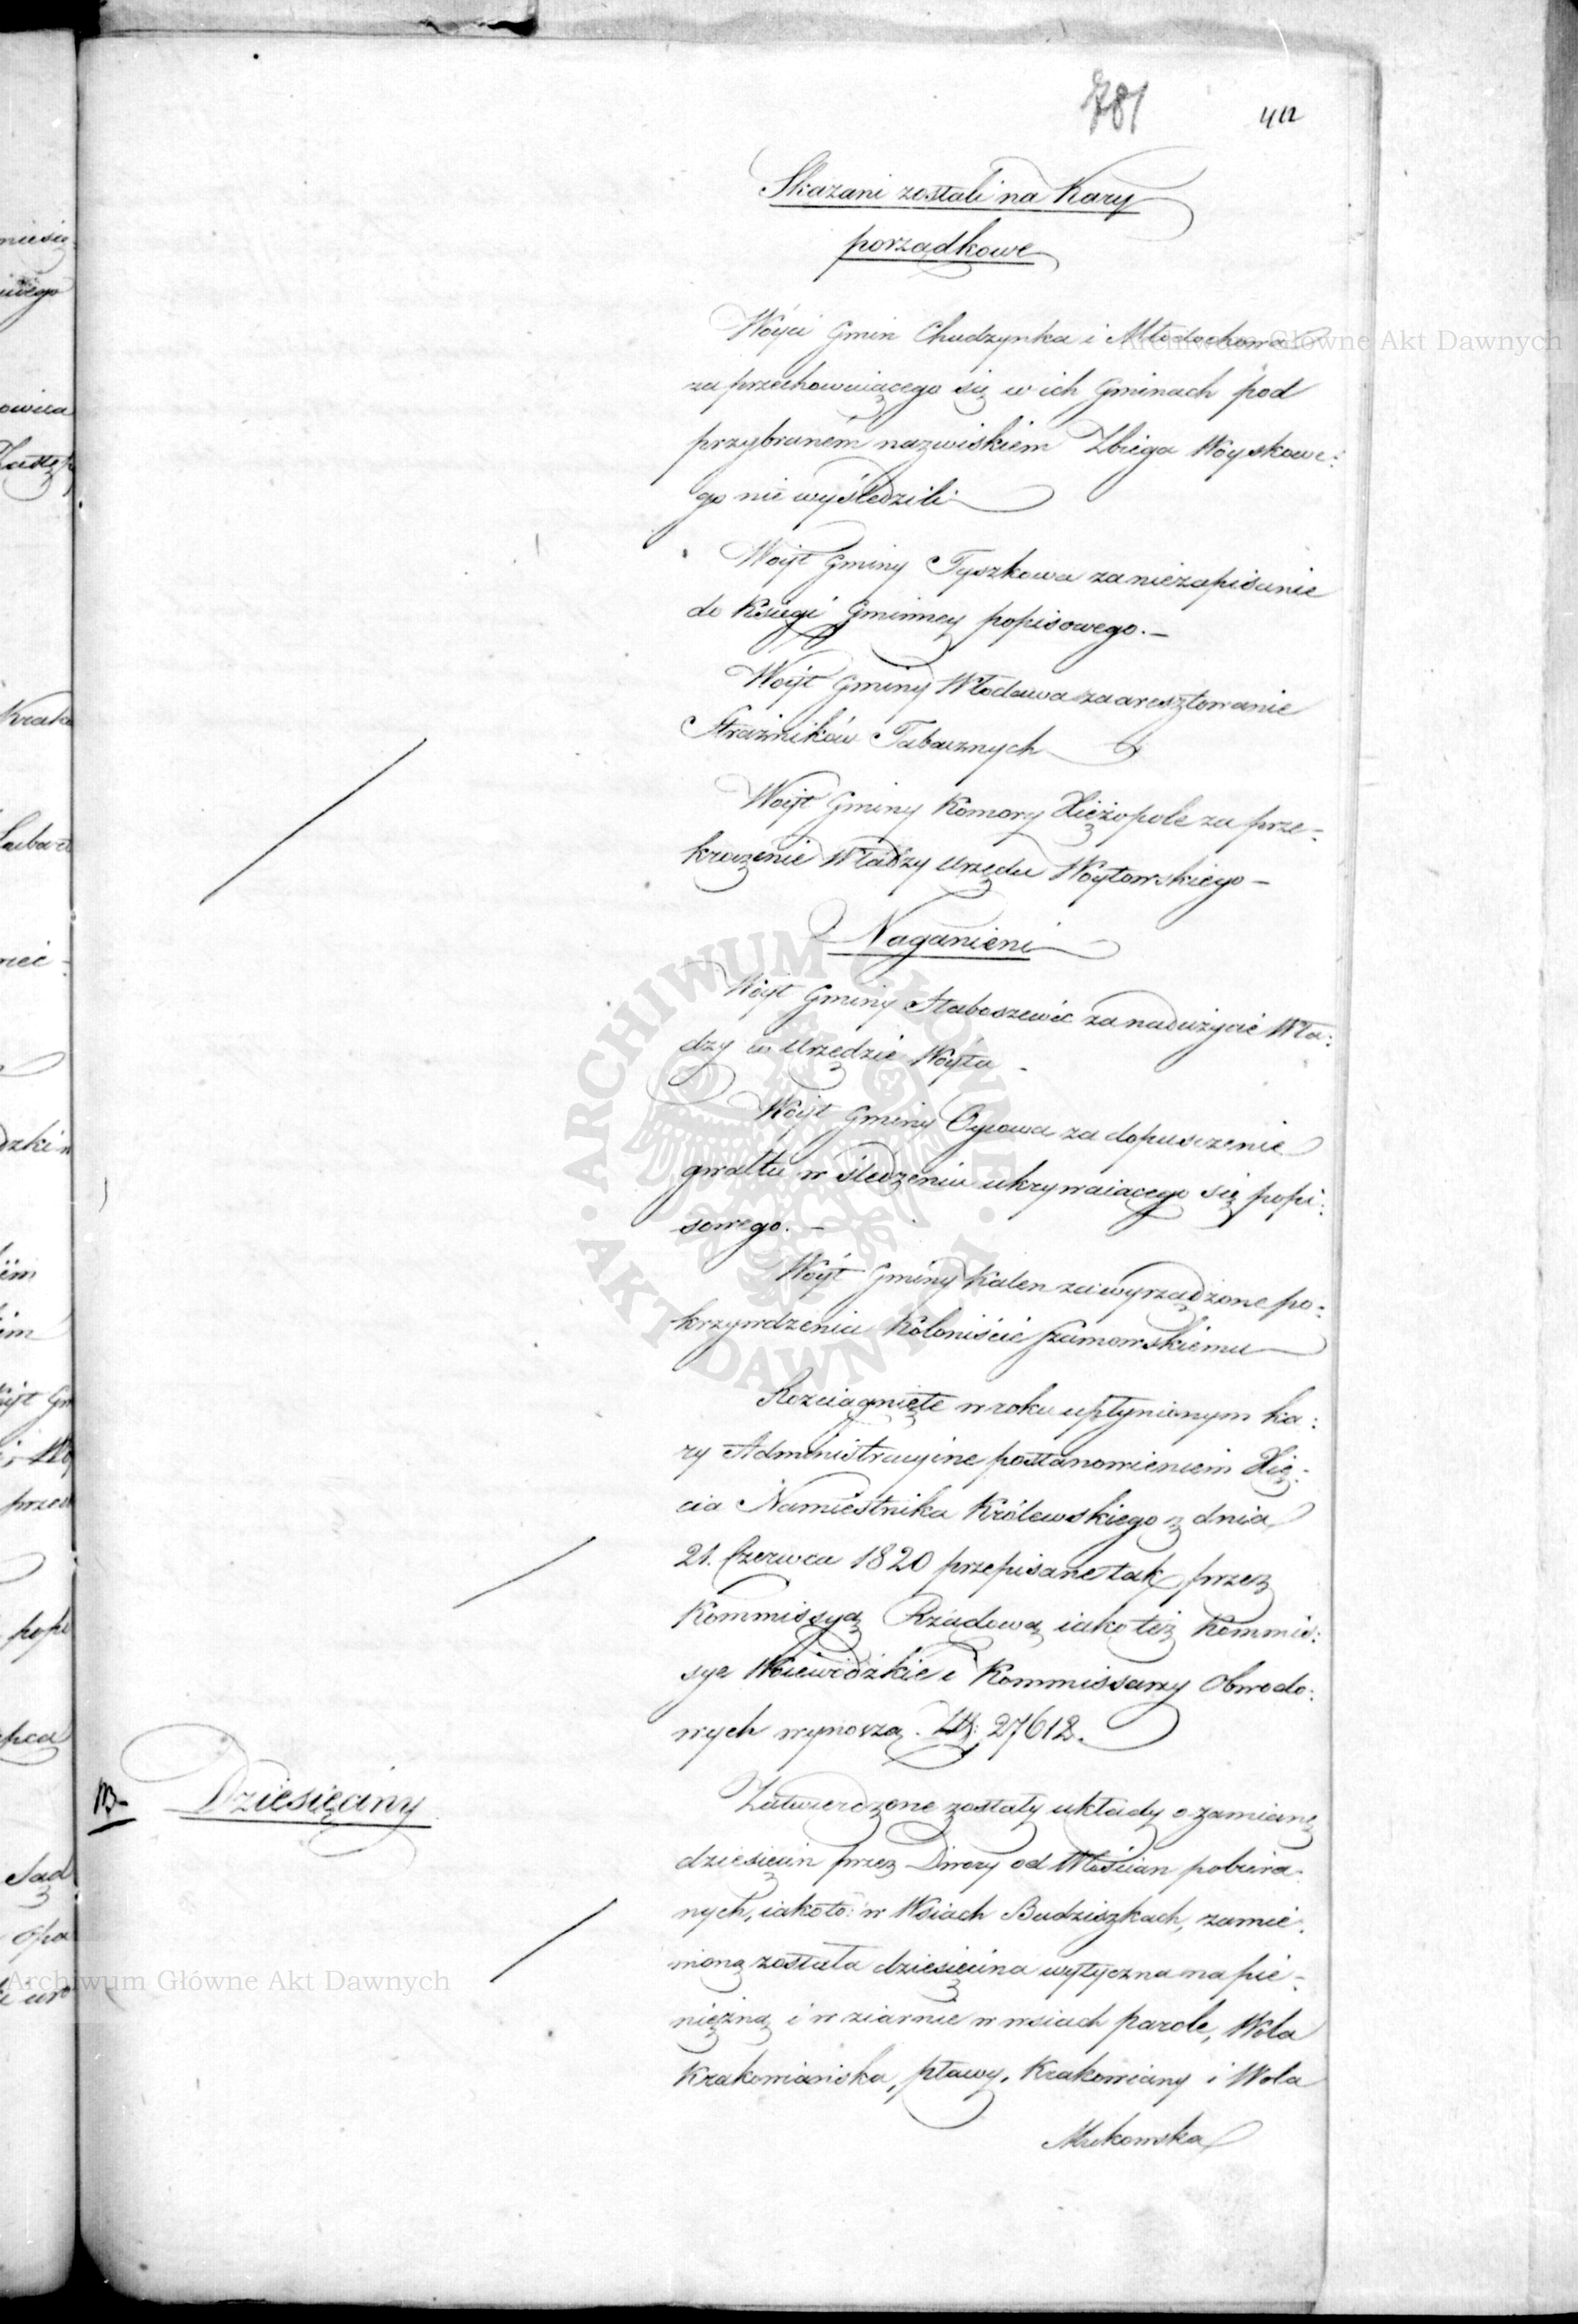 781 412
Skazani zostali na Kary
porządkowe
Wóyci Gmin Chudzynka i Młodochowa
za przechowuiącego się w ich Gminach pod
przybraném nazwiskiem Zbiega Woyskowe:
go nie wyśledzili
Woyt Gminy Tyszkowa za niezapisanie
do Księgi Gminney popisowego. _
Woyt Gminy Włodawa za aresztowanie
Strażników Tabacznych
Woyt Gminy Komory Xiężopole za prze-
kroczenie Władzy Urzędu Woytowskiego _
Naganieni
Woyt Gminy Słaboszewic za nadużycie Wła:
dzy w Urzędzie Woyta _
Woyt Gminy za dopuszczenie
gwałtu w śledzeniu ukrywaiącego się popi:
sowego. _
Woyt Gminy Kalen za wyrządzone po:
krzywdzenia Koloniście Szumowskiemu
Rozciągnięte w roku upłynionym ka:
ry Administracyine postanowieniem Xię:
cia Namiestnika Królewskiego z dnia
21. Czerwca 1820 przepisane tak przez
Kommissyą Rządową iako też Kommis:
sye Woiewódzkie i Kommissarzy Obwodo:
wych wynoszą. Złt: 27612.
B- Dziesięciny
Zatwierdzone zostały układy o zamianę
dziesięcin przez Dwory od Włościan pobiera:
nych, iakoto: w Wsiach Budziszkach, zamie:
nioną została dziesięcina wytyczna na pie-
niężną i w ziarnie w wsiach Parole, Wola
Krakowiańska, Krakowiany i Wola
Mrokowska
Archiwum Główne Akt Dawnych
Archiwum Główne Akt Dawnych
ARCHIWUM GŁÓWNE AKT DAWNYCH